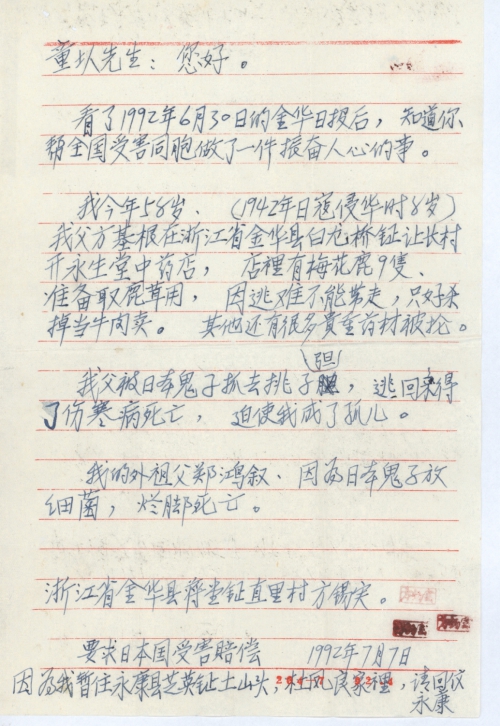 童㘦先生：您好。
看了1992年6月30日的金华日报后，知道你
帮全国受害同胞做了一件振奋人心的事。
我今年58岁、（1942年日寇侵华时8岁）
我父方基根在浙江省金华县白龙桥镇让长村
开永生堂中药店，店裡有梅花鹿9隻、
准备取鹿茸用，因逃难不能带走，只好杀
掉当牛肉卖。其他还有很多貴重药材被抢。
担
我父被日本鬼子抓去挑子，逃回来得
了伤寒病死亡，迫使我成了孤儿。
我的外祖父郑鸿叙、因为日本鬼子放
细菌，烂脚死亡。
浙江省金华县蒋堂镇直里村方锡
要求日本国受害赔偿 1992年7月7日
因为我暂住永康县芝英镇土山头，杜凤良家裡，请回仪
永康